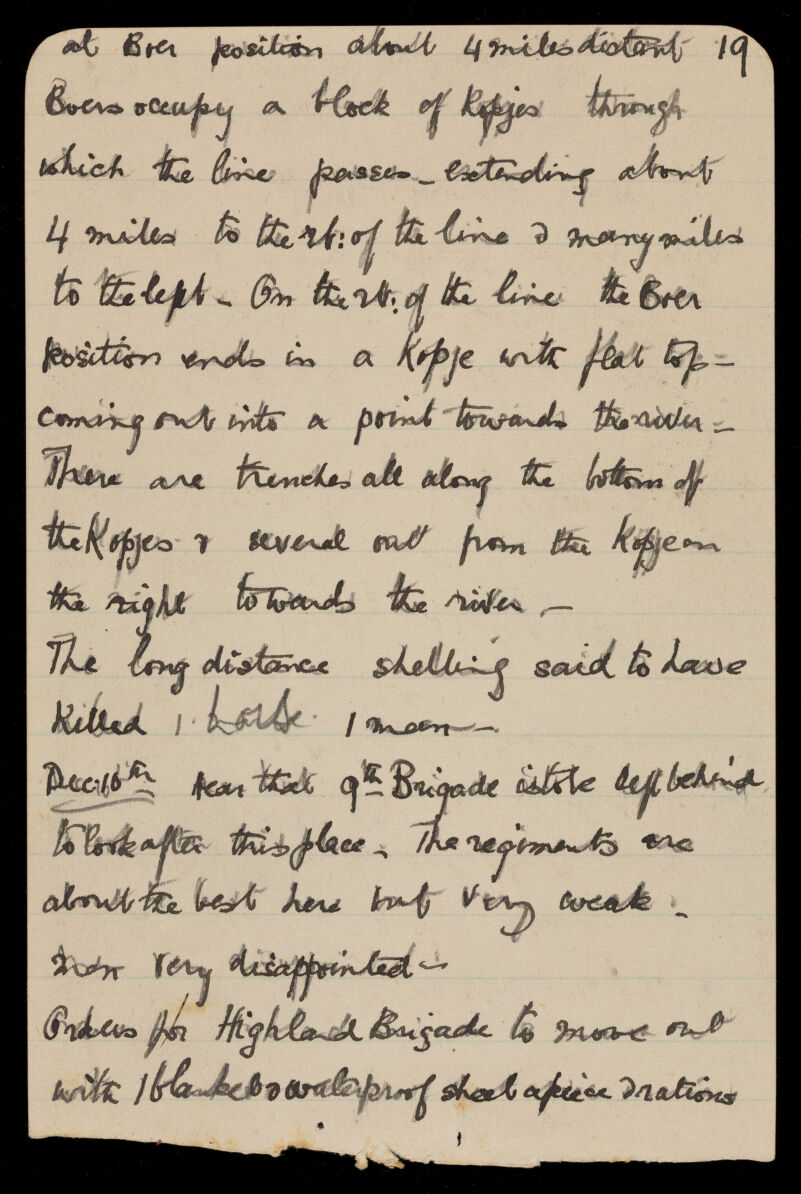 at Boer position about 4 miles distant 19
Boers occupy a block of Kopjes through
which the line passes - extending about
4 miles to the rt: of the line & many miles
to the left - On the rt: of the line the Boer
position ends in a Kopje with flat top -
coming out into a point towards the river -
There are trenches all along the bottom of
the Kopjes & several out from the Kopje on
the right towards the river -
The long distance shelling said to have
killed 1 horse 1 man -
Dec: 10th Hear that 9th Brigade is to be left behind
to look after this place - The regiments are
about the best here but very weak -
Men very disappointed -
Orders for Highland Brigade to move out
with 1 blanket & waterproof sheet apiece & rations